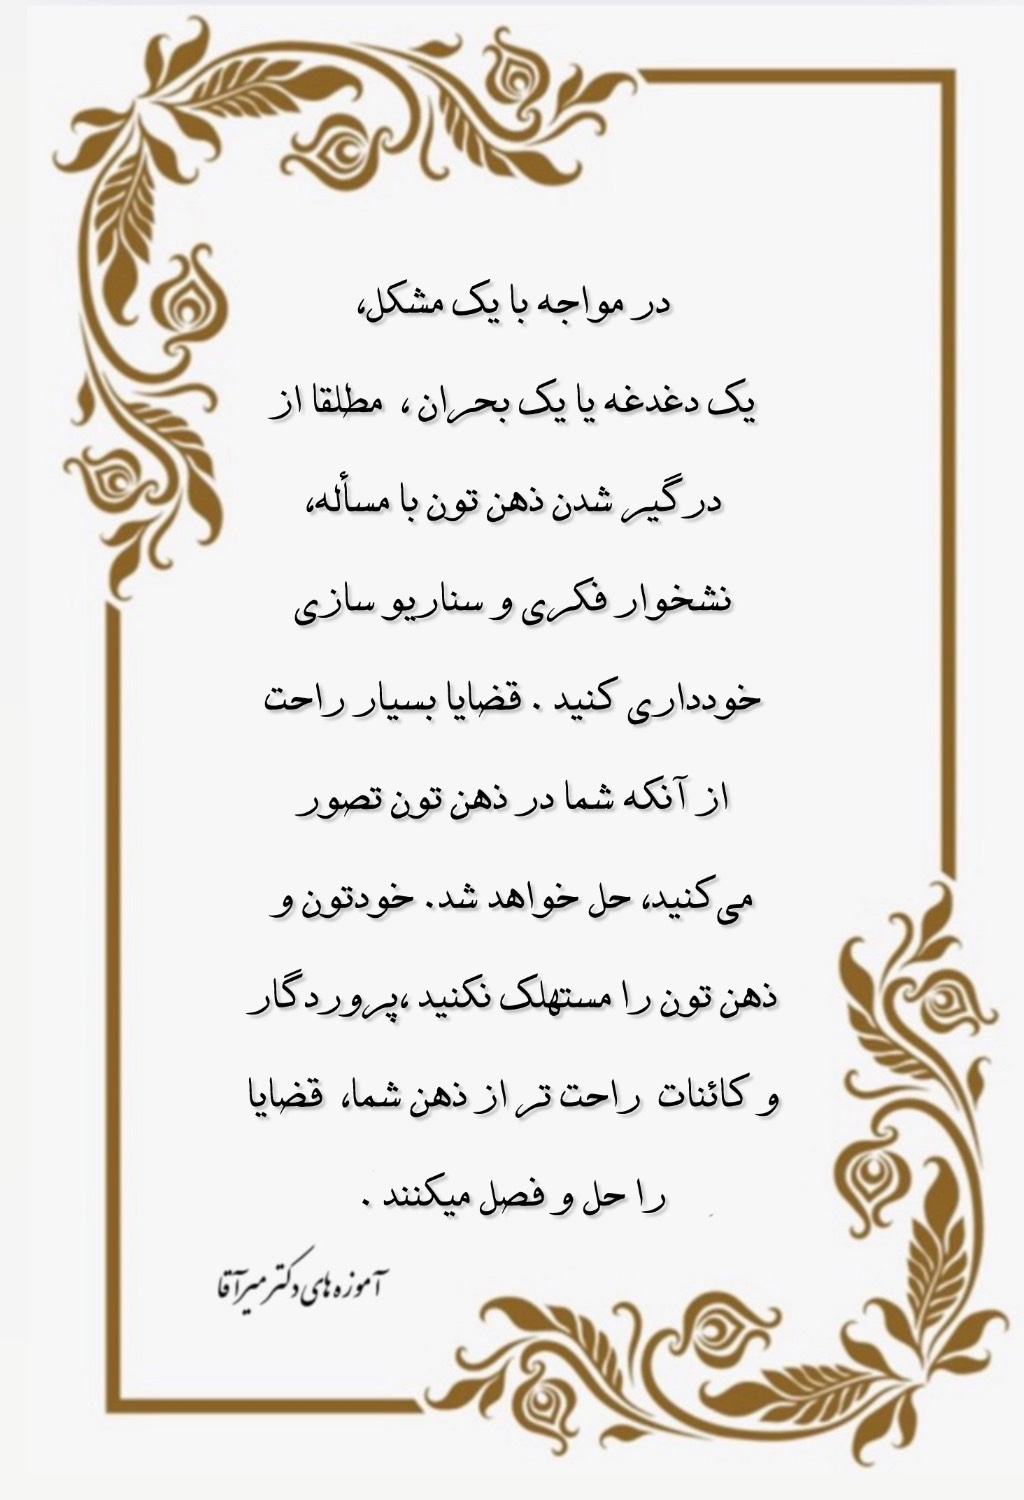 در مواجه با یک مشکل،
یک دغدغه یا یک بحران ، مطلقا از
درگیر شدن ذهن تون با مسأله،
نشخوار فکری و سناریو سازی
خودداری کنید . قضایا بسیار راحت
از آنکه شما در ذهن تون تصور
می‌کنید، حل خواهد شد. خودتون و
ذهن تون را مستهلک نکنید ،پروردگار
و کائنات راحت تر از ذهن شما، قضایا
را حل و فصل میکنند .
آموزه های دکتر میرآقا